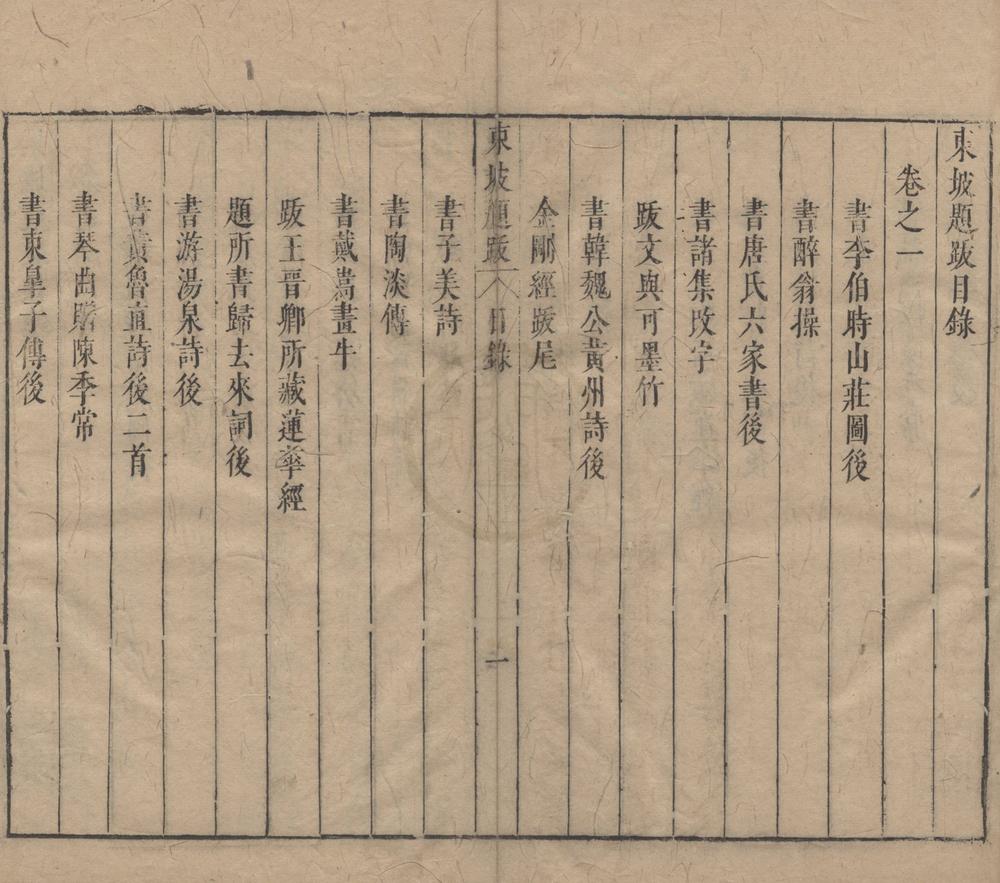 東坡題跋目錄
卷之一
書李伯時山莊圖後
書醉翁操
書唐氏六家書後
書諸集改字
跋文與可墨竹
書韓魏公黃州詩後
金剛經跋尾
東坡題跋 目錄 一
書子美詩
書陶淡傳
書戴嵩畫牛
跋王晉卿所藏蓮華經
題所書歸去來詞後
書游湯泉詩後
書黃魯直詩後二首
書琴曲贈陳季常
書東皐子傳後